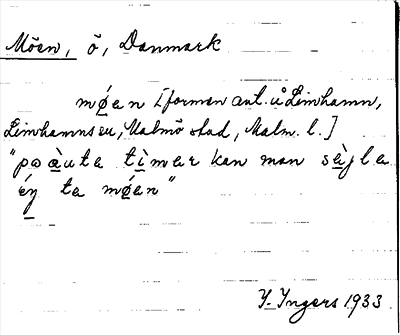 Möen, ö, Danmark
mø̱en [formen ant. å Limhamn,
Limhamns sn, Malmö stad, Malm. l.]
"po à̱uta tì̱mar kan man sè̱jla
é̱y ta mø̱en"
I. Ingers 1933